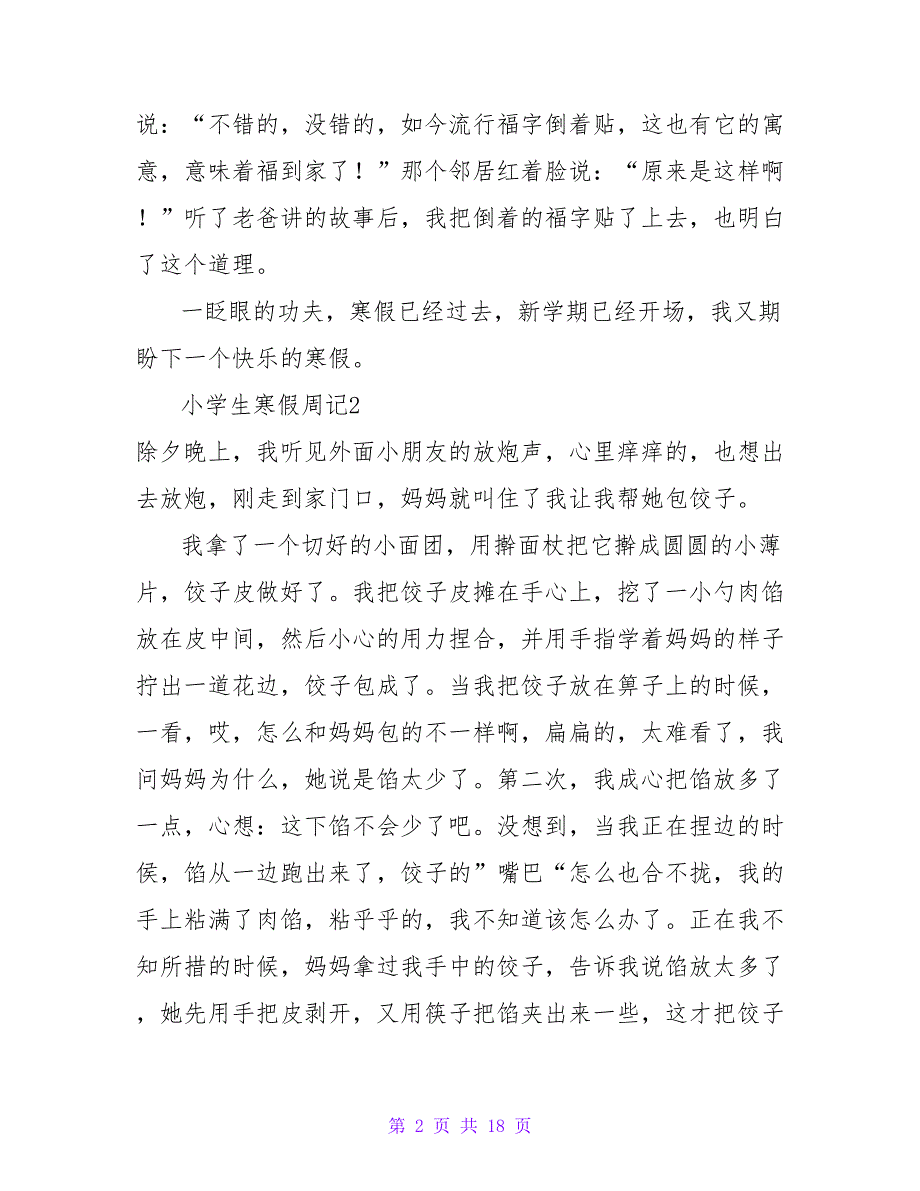 说：“不错的，没错的，如今流行福字倒着贴，这也有它的寓
意，意味着福到家了！”那个邻居红着脸说：“原来是这样啊
！”听了老爸讲的故事后，我把倒着的福字贴了上去，也明白
了这个道理。
一眨眼的功夫，寒假已经过去，新学期已经开场，我又期
盼下一个快乐的寒假。
小学生寒假周记2
除夕晚上，我听见外面小朋友的放炮声，心里痒痒的，也想出
去放炮，刚走到家门口，妈妈就叫住了我让我帮她包饺子。
我拿了一个切好的小面团，用擀面杖把它擀成圆圆的小薄
片，饺子皮做好了。我把饺子皮摊在手心上，挖了一小勺肉馅
放在皮中间，然后小心的用力捏合，并用手指学着妈妈的样子
拧出一道花边，饺子包成了。当我把饺子放在箅子上的时候，
一看，哎，怎么和妈妈包的不一样啊，扁扁的，太难看了，我
问妈妈为什么，她说是馅太少了。第二次，我成心把馅放多了
一点，心想：这下馅不会少了吧。没想到，当我正在捏边的时
侯，馅从一边跑出来了，饺子的”嘴巴“怎么也合不拢，我的
手上粘满了肉馅，粘乎乎的，我不知道该怎么办了。正在我不
知所措的时候，妈妈拿过我手中的饺子，告诉我说馅放太多了
，她先用手把皮剥开，又用筷子把馅夹出来一些，这才把饺子
第 2 页 共 18 页